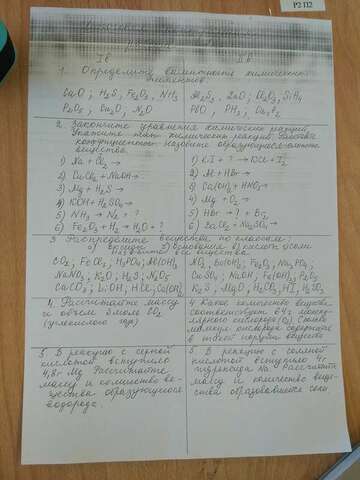 Р2 П2
I в
II в
1. Определите валентность химических элементов:
CaO; H₂S; Fe₂O₃, NH₃
P₂O₅; Cu₂O; N₂O
Al₂S₃, ZnO; Cl₂O₇, SiH₄
PbO, PH₃
2. Закончите уравнения химических реакций
Укажите типы химических реакций. Расставьте
коэффициенты. Назовите образующиеся
вещества
1) Na + Cl₂ →
2) CuCl₂ + NaOH →
3) Mg + H₂S →
4) KOH + H₂SO₄ →
5) NH₃ → N₂ + ?
6) Fe₂O₃ + H₂ → H₂O + ?
1) KI + ? → KCl + I₂
2) Al + HBr →
3) Ca(OH)₂ + HNO₃ →
4) Mg + O₂ →
5) HBr → ? + Br₂
6) BaCl₂ + Na₂SO₄ →
3 Распределите вещества по классам:
а) оксиды б) основания в) кислоты соли
Назовите все вещества.
CO₂, FeCl₃, H₃PO₄, Al(OH)₃
NaNO₃, K₂O; H₂S; N₂O₅
CaCO₃; LiOH; HCl; Ca(OH)₂
NO₂, Ba(OH)₂, Fe₂O₃, Na₃PO₄;
CuSO₄; NaOH; P₂O₅
K₂S; MgO; H₂CO₃, HI, H₂SO₄
4. Рассчитайте массу
и объем 3 моль CO₂
(углекислого газа)
4 Какое количество вещества
соответствует 64 г молеку-
лярного кислорода (O₂) Сколько
молекул кислорода содержится
в этой порции вещества
5. В реакцию с серной
кислотой вступило
4,8г Mg Рассчитайте
массу и количество ве-
щества образующегося
водорода.
5. В реакцию с соляной
кислотой вступило 4г
гидроксида Na Рассчитайте
массу и количество веще-
ства образовавшейся соли.